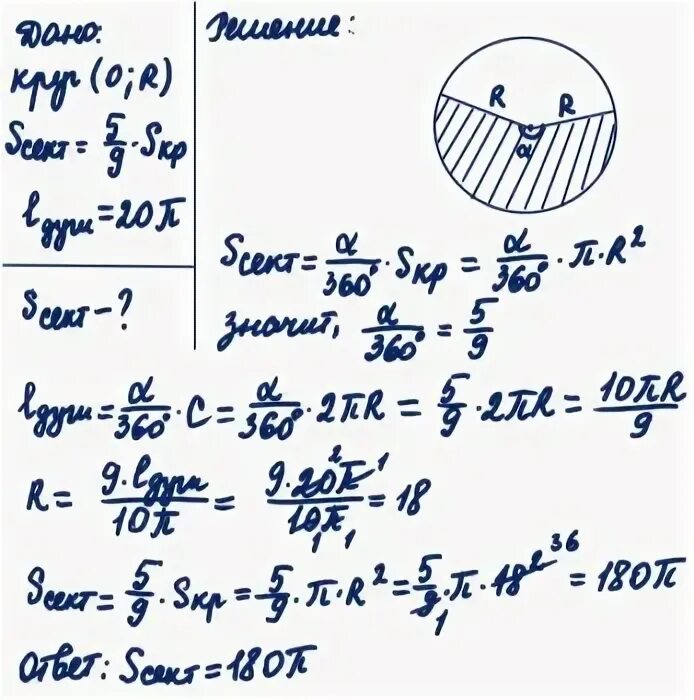 Дано:
круг (O; R)
Sсект = 5/9 · Sкр
lдуги = 20π
Sсект – ?
Решение:
R R
α
Sсект = α/360° · Sкр = α/360° · π · R²
значит, α/360° = 5/9
lдуги = α/360° · C = α/360° · 2πR = 5/9 · 2πR = 10πR/9
R = 9 · lдуги/10π = 9 · 20π/10π = 18
2 1
1 1
Sсект = 5/9 · Sкр = 5/9 · π · R² = 5/9 · π · 18² = 180π
36
1
Ответ: Sсект = 180π